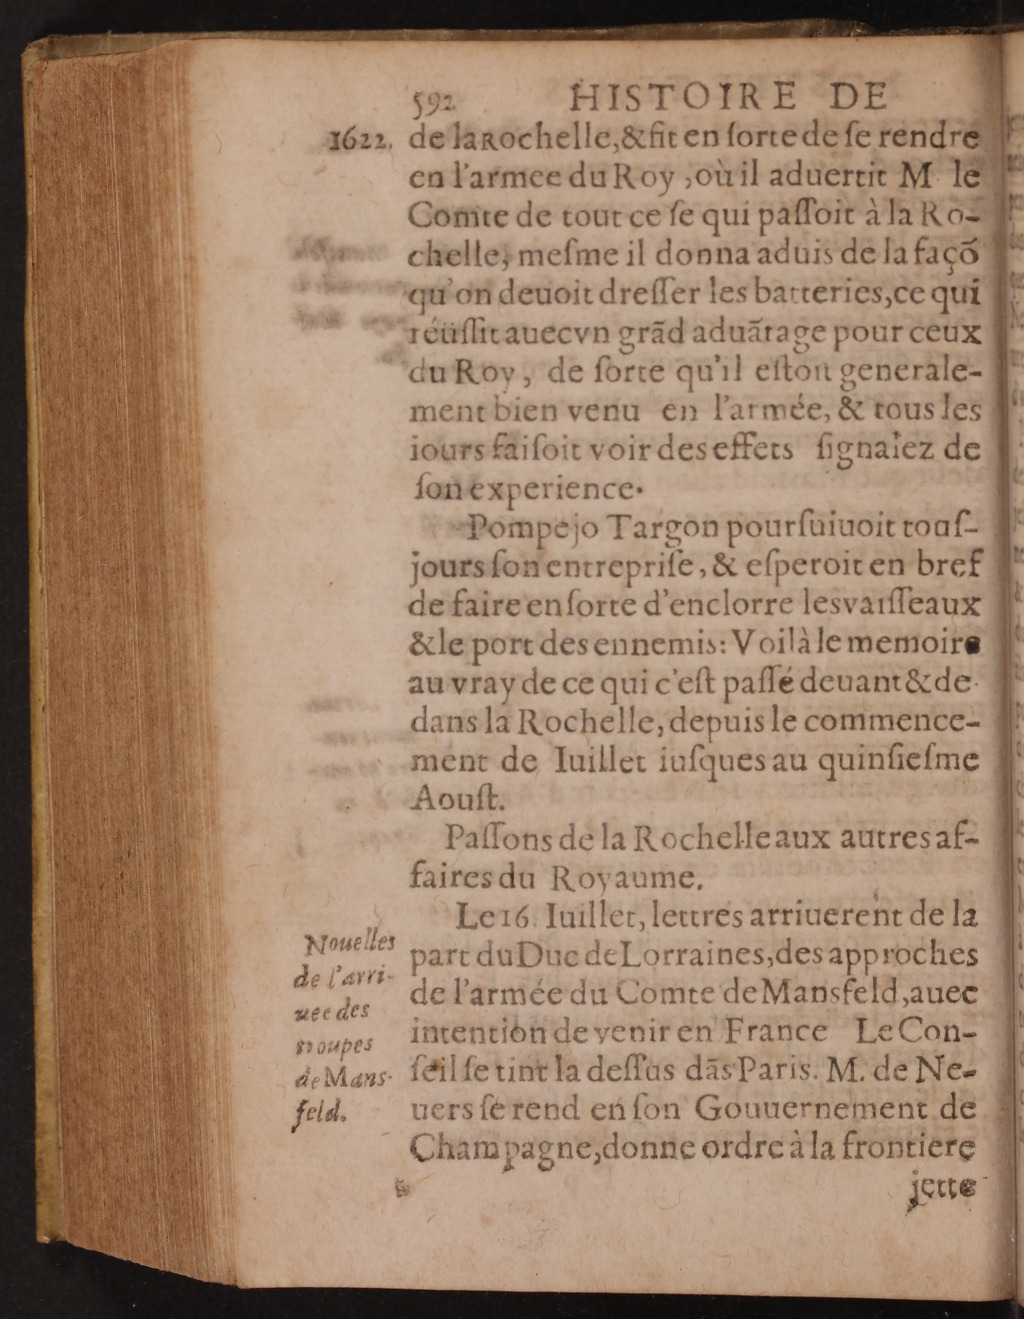 592 HISTOIRE DE
1622. de la Rochelle, & fit en ſorte de ſe rendre
en l'armee du Roy, où il aduertit M le
Comte de tout ce ſe qui paſſoit à la Ro-
chelle, meſme il donna aduis de la façõ
qu'on deuoit dreſſer les batteries, ce qui
réüſſit auec vn grãd aduãtage pour ceux
du Roy, de ſorte qu'il eſtoit generale-
ment bien venu en l'armée, & tous les
iours faiſoit voir des effets ſignalez de
ſon experience.
Pompejo Targon pourſuiuoit touſ-
jours ſon entrepriſe, & eſperoit en bref
de faire en ſorte d'enclorre les vaiſſeaux
& le port des ennemis: Voilà le memoire
au vray de ce qui c'eſt paſſé deuant & de-
dans la Rochelle, depuis le commence-
ment de Iuillet iuſques au quinſieſme
Aouſt.
Paſſons de la Rochelle aux autres af-
faires du Royaume.
Le 16. Iuillet, lettres arriuerent de la
part du Duc de Lorraines, des approches
de l'armée du Comte de Mansfeld, auec
intention de venir en France Le Con-
ſeil ſe tint la deſſus dãs Paris. M. de Ne-
uers ſe rend en ſon Gouuernement de
Champagne, donne ordre à la frontiere
jette
Nouelles
de l'arri-
uee des
troupes
de Mans-
feld.